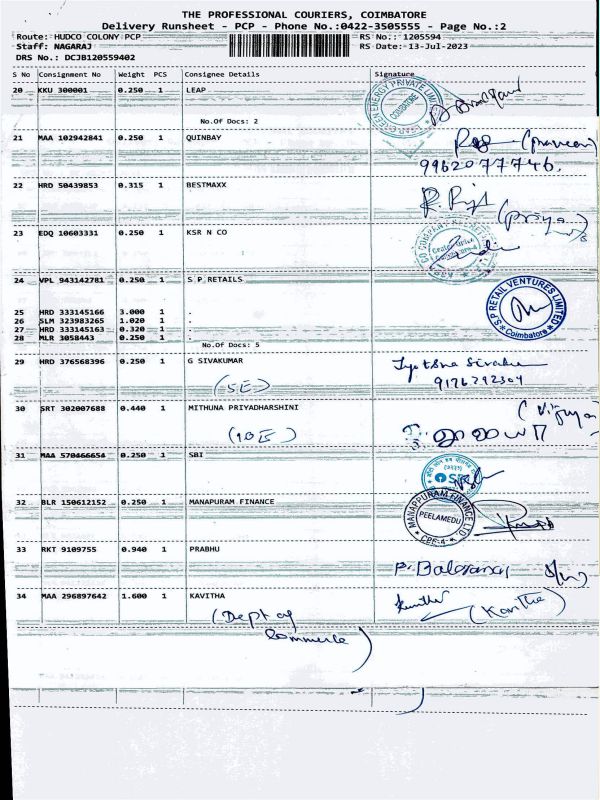 THE PROFESSIONAL COURIERS, COIMBATORE
Delivery Runsheet - PCP - Phone No.:0422-3505555 - Page No.:2
Route: HUDCO COLONY PCP
RS No.: 1205594
Staff: NAGARAJ
RS Date:-13-Jul-2023
DRS No.: DCJB120559402
S No Consignment No Weight PCS Consignee Details Signature
20 KKU 300001 0.250 1 LEAP
GREEN ENERGY PRIVATE LIMITED
COIMBATORE
No.Of Docs: 2
21 MAA 102942841 0.250 1 QUINBAY
(praveen)
9962077746.
22 HRD 50439853 0.315 1 BESTMAXX
(priya)
23 EDQ 10603331 0.250 1 KSR N CO
24 VPL 943142781 0.250 1 S P RETAILS
S P RETAIL VENTURES LIMITED
Coimbatore
25 HRD 333145166 3.000 1 .
26 SLM 323983265 1.020 1 .
27 HRD 333145163 0.320 1 .
28 MLR 3058443 0.250 1 .
No.Of Docs: 5
29 HRD 376568396 0.250 1 G SIVAKUMAR
Jyotsna Sivaku
(5E)
9176792304
30 SRT 302007688 0.440 1 MITHUNA PRIYADHARSHINI
(10E)
31 MAA 570466654 0.250 1 SBI
SBI
32 BLR 150612152 0.250 1 MANAPURAM FINANCE
MANAPPURAM FINANCE LTD.
PEELAMEDU
CBE-4
33 RKT 9109755 0.940 1 PRABHU
34 MAA 296897642 1.600 1 KAVITHA
(Kavitha)
(Dept of
Commerce)